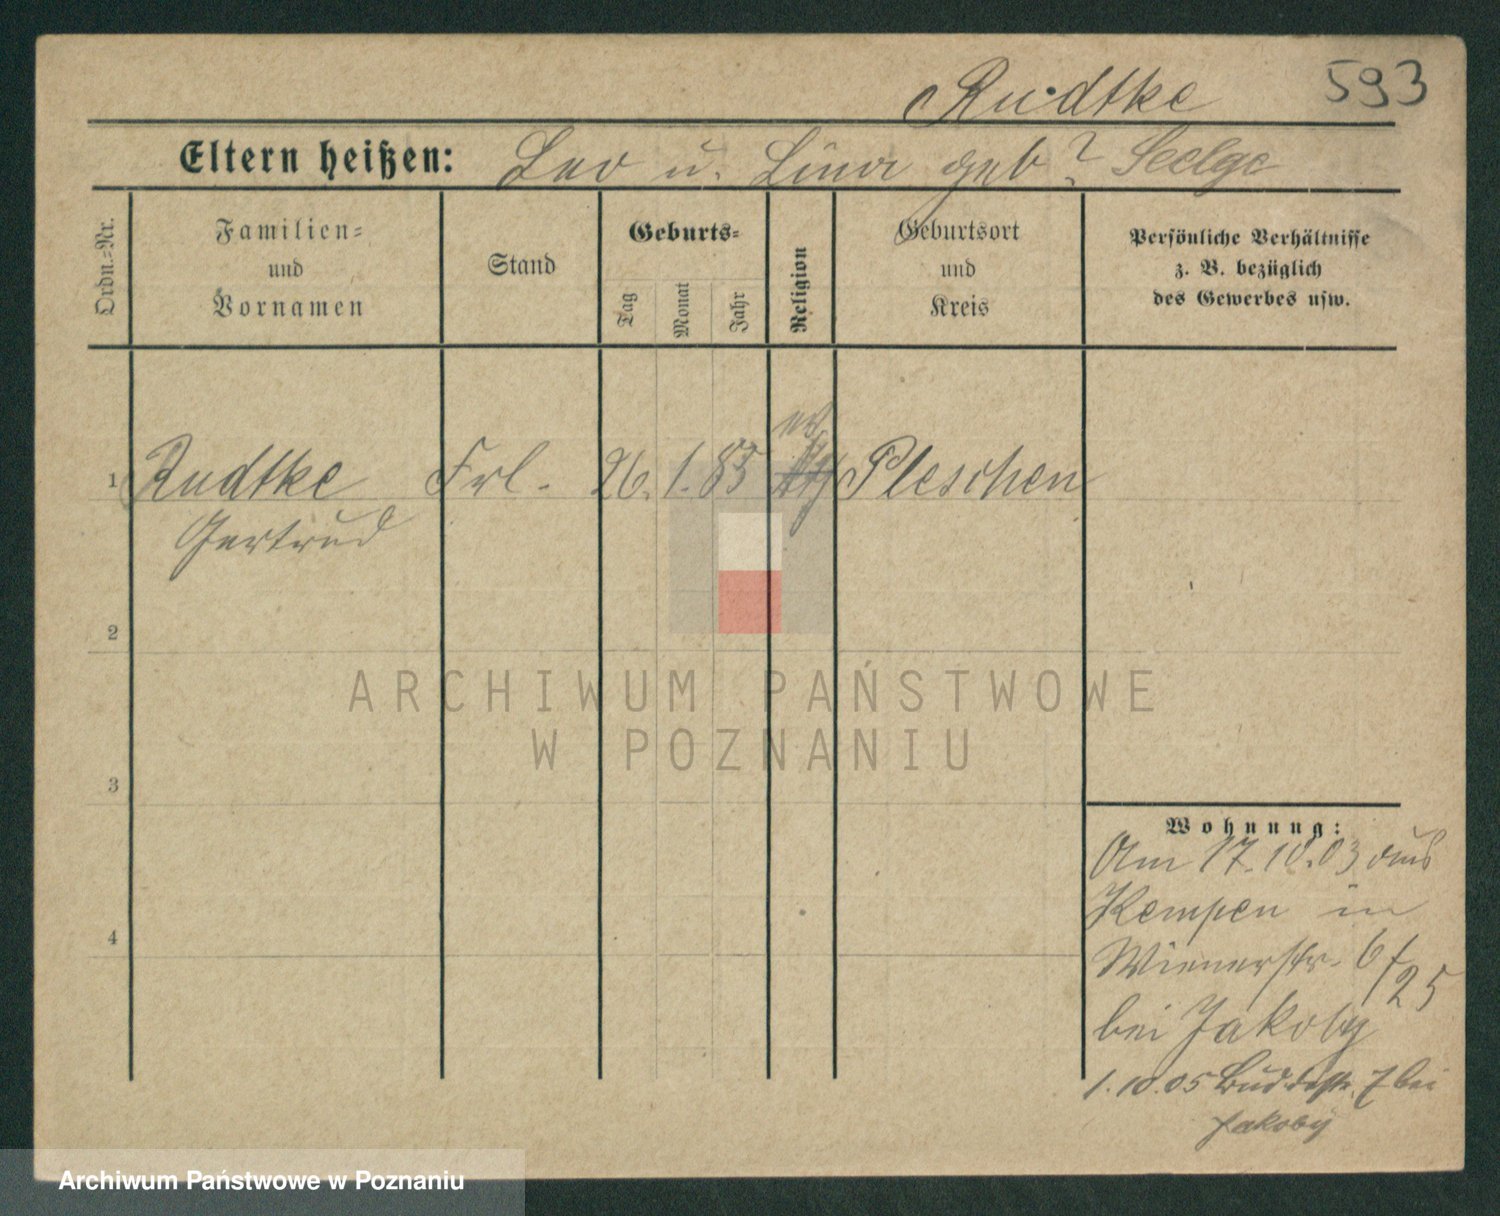 Rudtke 593
Eltern heißen: Leo u. Lina geb? Seelge
Ordn.-Nr.
Familien-
und
Vornamen
Stand
Geburts-
Tag
Monat
Jahr
Religion
Geburtsort
und
Kreis
Persönliche Verhältnisse
z. B. bezüglich
des Gewerbes usw.
ev
1 Rudtke Frl. 26. 1. 85 Pleschen
Gertrud
2
3
4
ARCHIWUM PAŃSTWOWE
W POZNANIU
Wohnung:
Am 17.10.03 aus
Kempen in
Wienerstr. 6/25
bei Jakoby
1.10.05 Buddestr. 7 bei
Jakoby
Archiwum Państwowe w Poznaniu